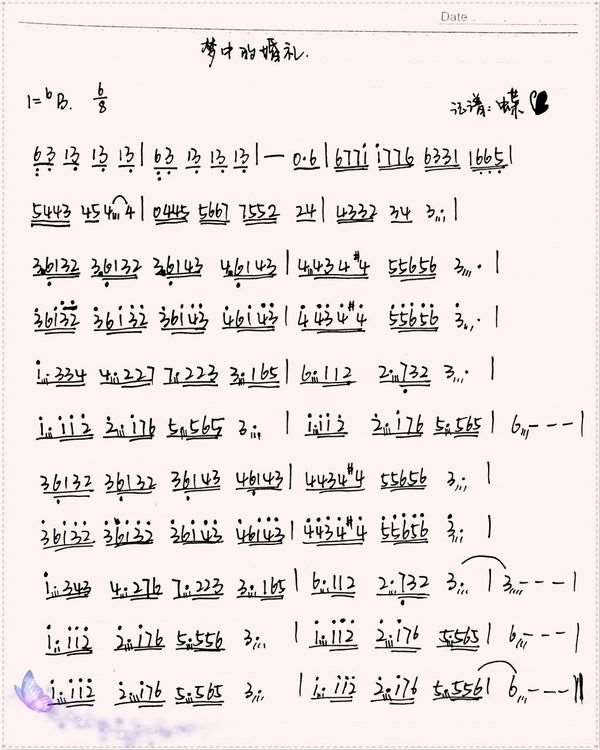 Date
梦中的婚礼.
1=ᵇB. 6/8
记谱：蝶
63 13 13 13 | 63 13 13 13 | — 0·6 | 677i i776 6331 1665 |
5443 454 4 | 0445 5667 7552 24 | 4332 34 3 |
36132 36132 36143 46143 | 4434#4 55656 3 · |
36i32 36i32 36i43 46i43 | 4434#4 55656 3 · |
i·334 4·227 7·223 3·165 | 6·112 2·732 3 · |
i·ii2 2·i76 5·565 3 | i·ii2 2·i76 5·565 | 6 - - - |
36132 36132 36143 46143 | 4434#4 55656 3 |
36i32 36i32 36i43 46i43 | 4434#4 55656 3 |
i·343 4·276 7·223 3·165 | 6·112 2·732 3 | 3 - - - |
i·ii2 2·i76 5·556 3 | i·ii2 2·i76 5·565 | 6 - - - |
i·ii2 2·i76 5·565 3 | i·ii2 2·i76 5·556 | 6 - - - ‖